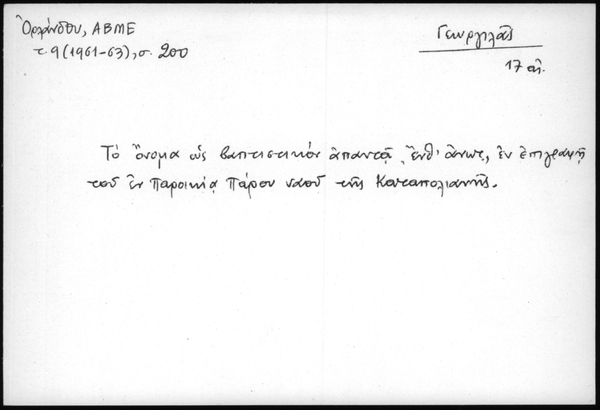 Ὀρλάνδου, ΑΒΜΕ
τ. 9 (1961-63), σ. 200
Γεωργιλᾶς
17 αἰ.
Τὸ ὄνομα ὡς βαπτιστικὸν ἀπαντᾷ, ἔνθ' ἄνωτ., ἐν ἐπιγραφῇ
τοῦ ἐν Παροικίᾳ Πάρου ναοῦ τῆς Καταπολιανῆς.